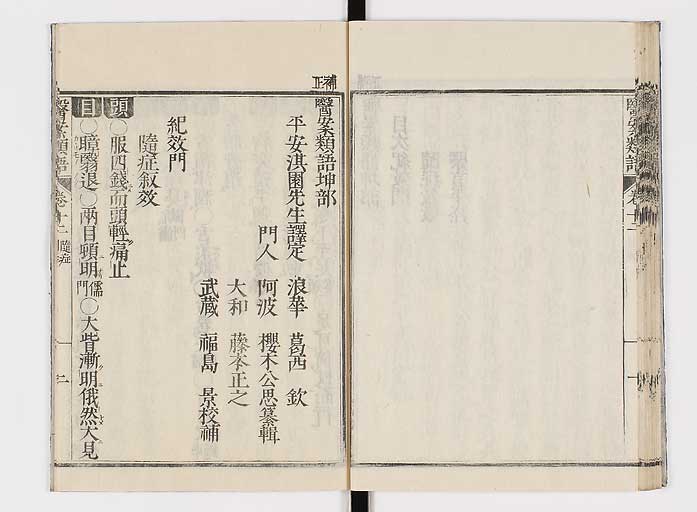 醫案類語 卷十二 一
補正
醫案類語坤部
平安淇園先生譯定
門人 浪華 葛西 欽
阿波 櫻木公思纂輯
大和 藤本正之
武蔵 福島 景校補
紀效門
隨症叙效
頭 〇服四錢而頭輕痛止
目 〇瞕翳退〇兩目頓明儒門〇大眥漸明俄然大見
醫案類語 卷十二 隨症 二